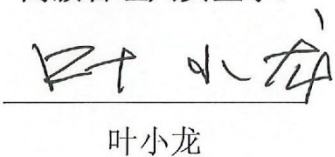 叶小龙
叶小龙